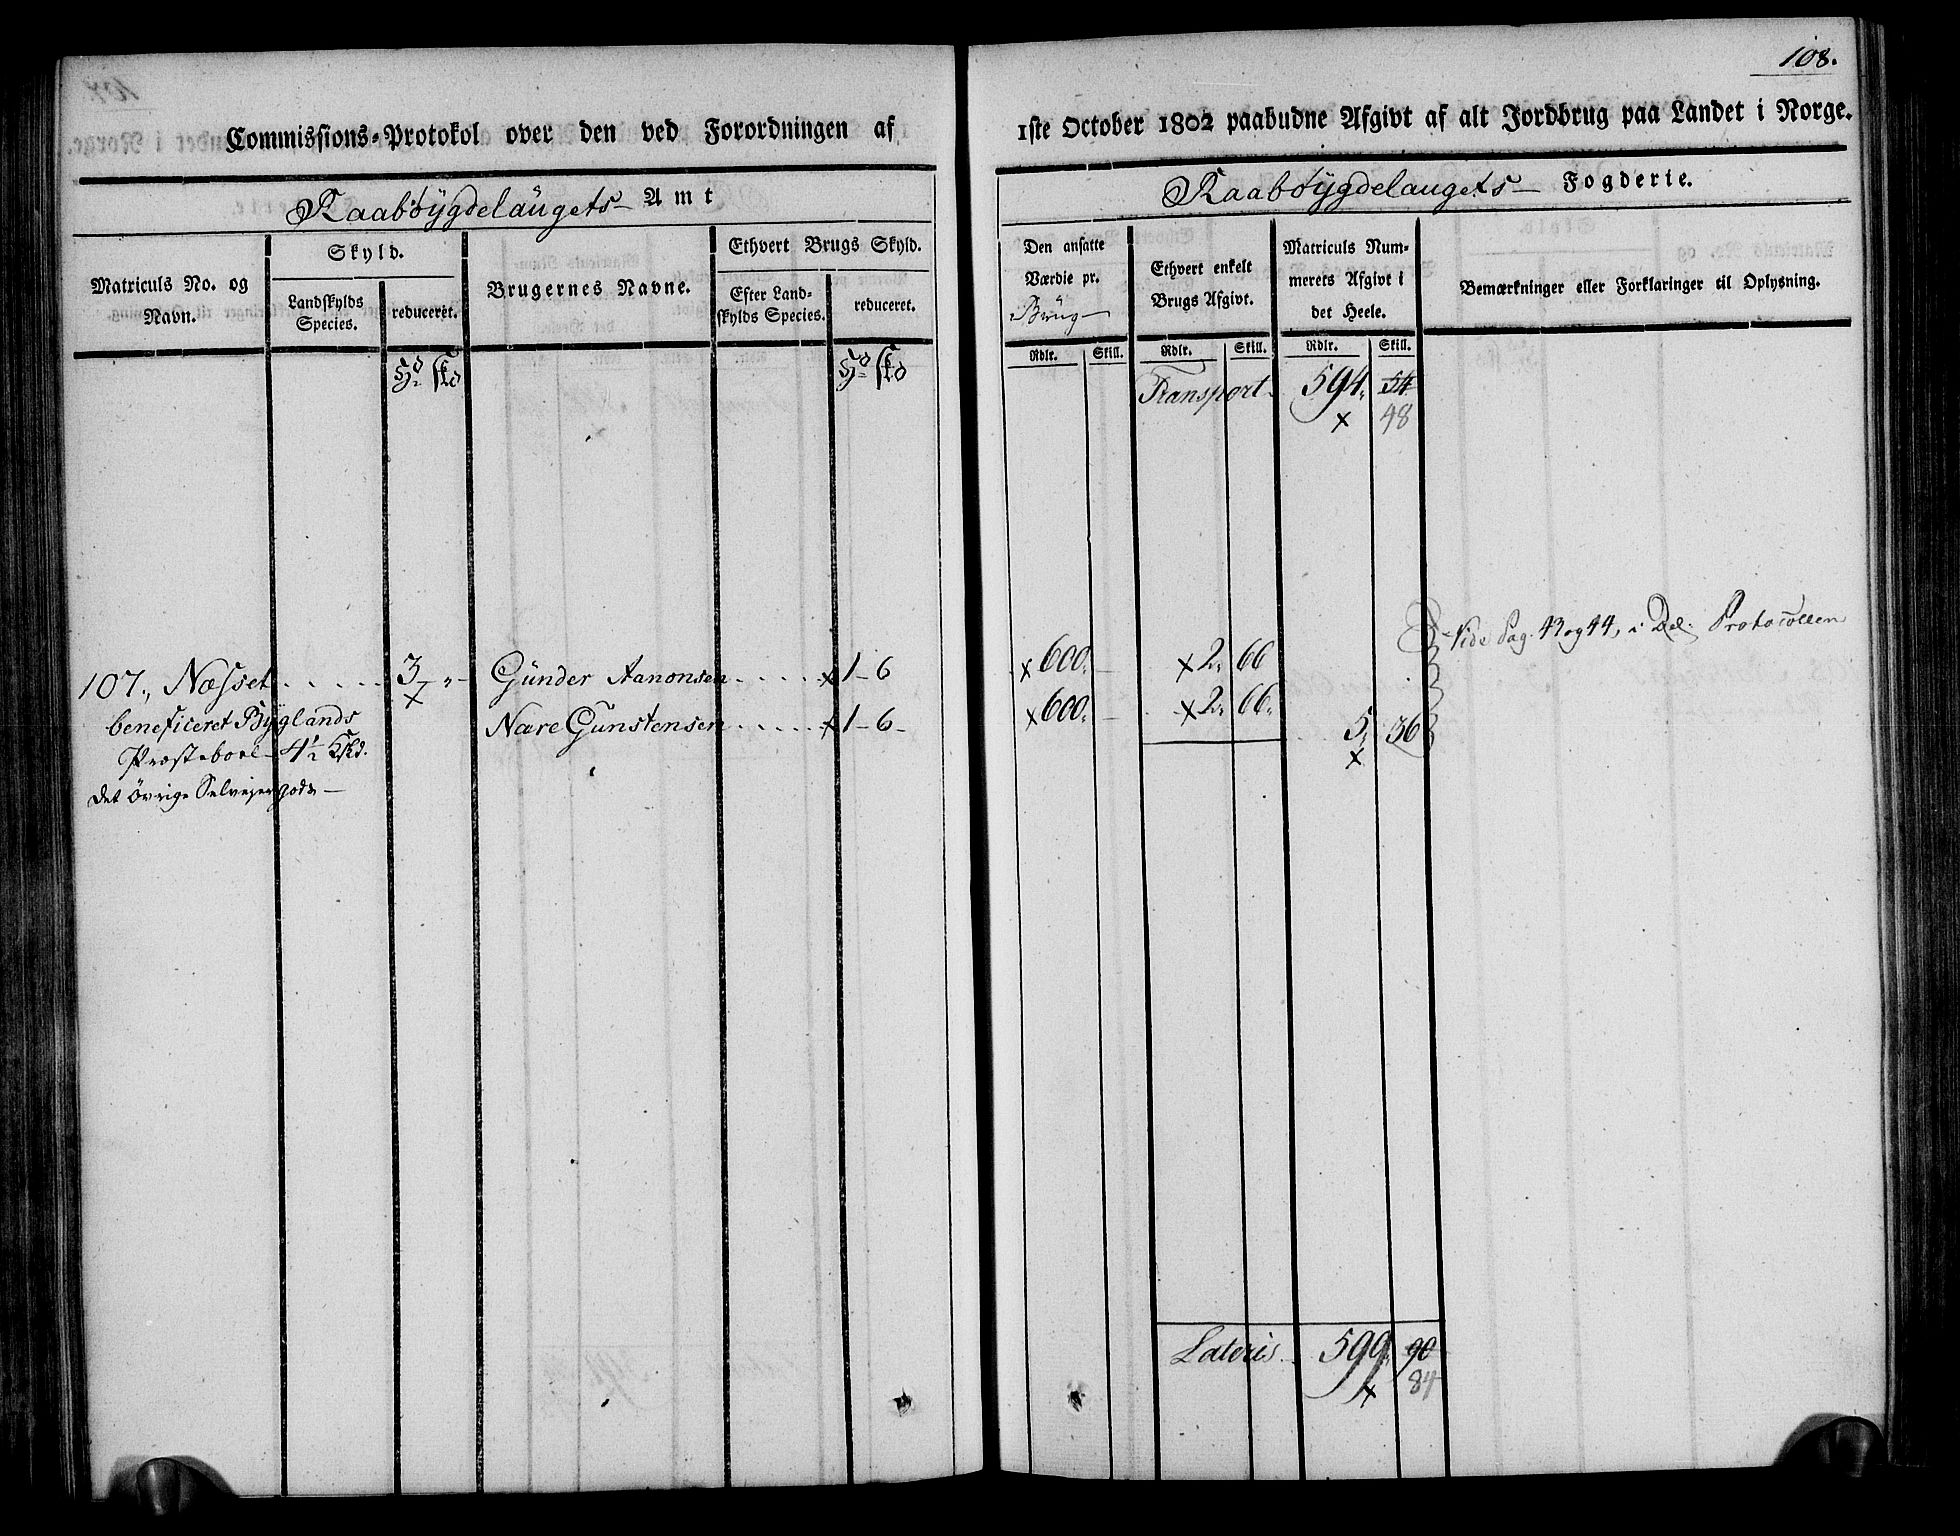 108.
Commissions-Protokol over den ved Forordningen af
1ste October 1802 paabudne Afgivt af alt Jordbrug paa Landet i Norge.
Raabøygdelaugets Amt
Raabøygdelaugets Fogderie.
Matriculs No. og Navn.
Skyld.
Landskylds Species.
reduceret.
Brugernes Navne.
Ethvert Brugs Skyld.
Efter Landskylds Species.
reduceret.
Den ansatte Værdie pr. Brug
Ethvert enkelt Brugs Afgivt.
Matriculs Nummerets Afgivt i det Heele.
Bemærkninger eller Forklaringer til Oplysning.
Rdlr. Skill. Rdlr. Skill. Rdlr. Skill.
Transport 594. 54
x 48
Vide Pag. 43 og 44, i Del. Protocollen
107., Næsset 3 - " - Gunder Aanonsen x 1 - 6 x 600. x 2. 66
x
beneficeret Byglands Nare Gunstensen x 1 - 6 - x 600. x 2. 66. 5. 36
Præsteboel 4½ x
det øvrige Selveyergods
Lateris 599. 90
x 84